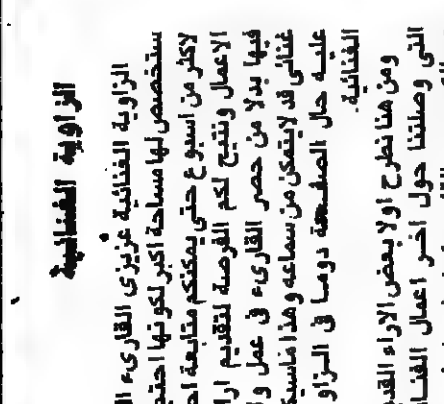 الزاوية الغنائية
الزاوية الغنائية عزيزى القارىء
ستخصص لها مساحة اكبر لكونها
لاكثر من اسبوع حتى يمكنكم متابعة
الاعمال ونتيح لكم الفرصة لتقديم
فيها بدلا من حصر القارىء فى عمل
غنائى قد لايتمكن من سماعه وهذا
عليه حال الصفحة دوما فى
الغنائية.
ومن هنا نطرح اولا بعض الاراء
التى وصلتنا حول اخر اعمال